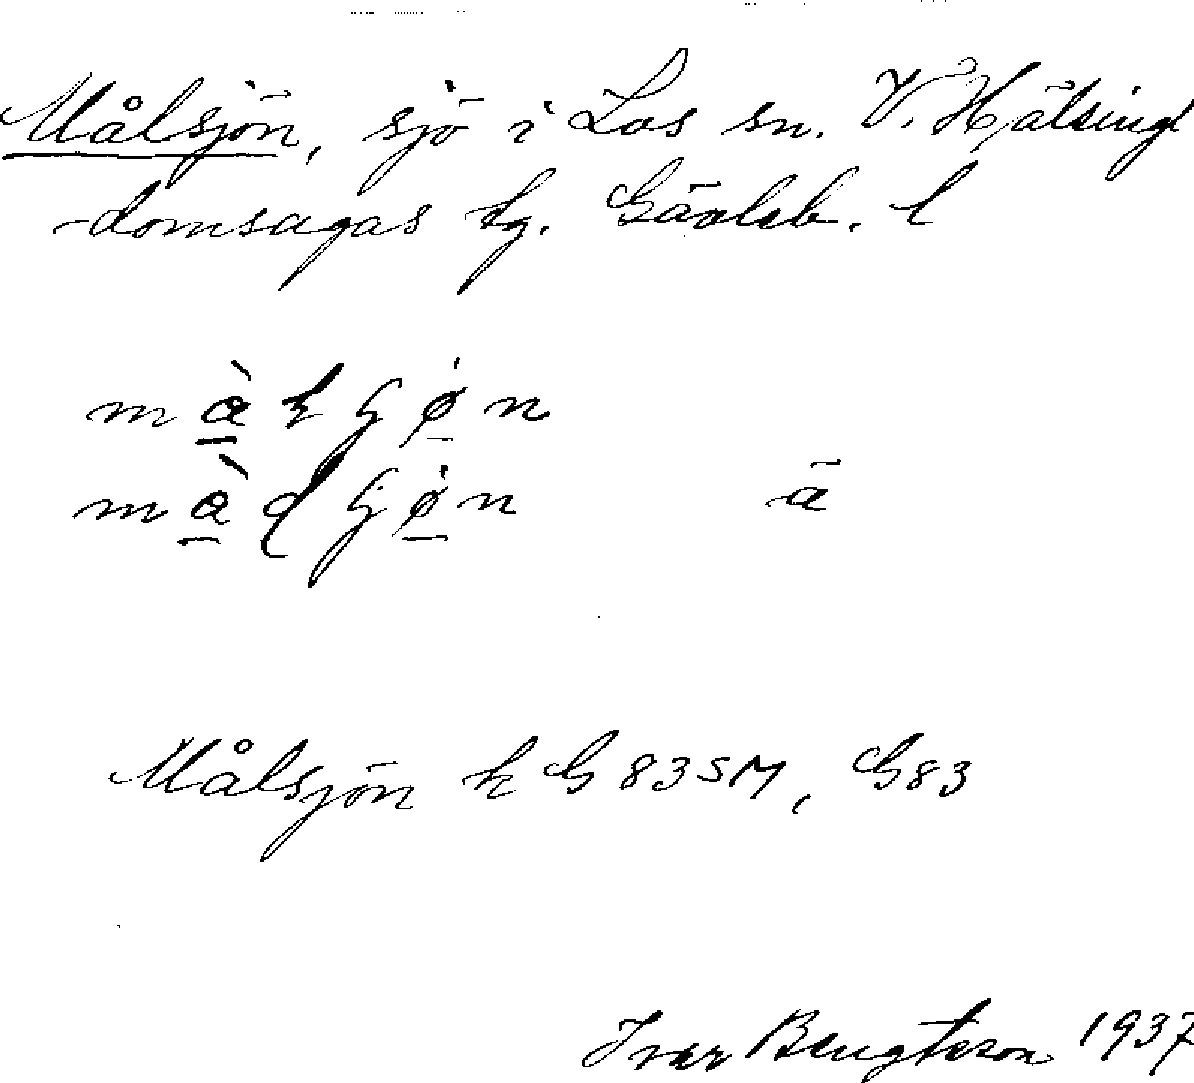 Målsjön, sjö i Los sn. V. Hälsingl
-domsagas tg. Gävleb. l
ā
Målsjön k G 83 SM, G83
Ivar Bengtsson 1937